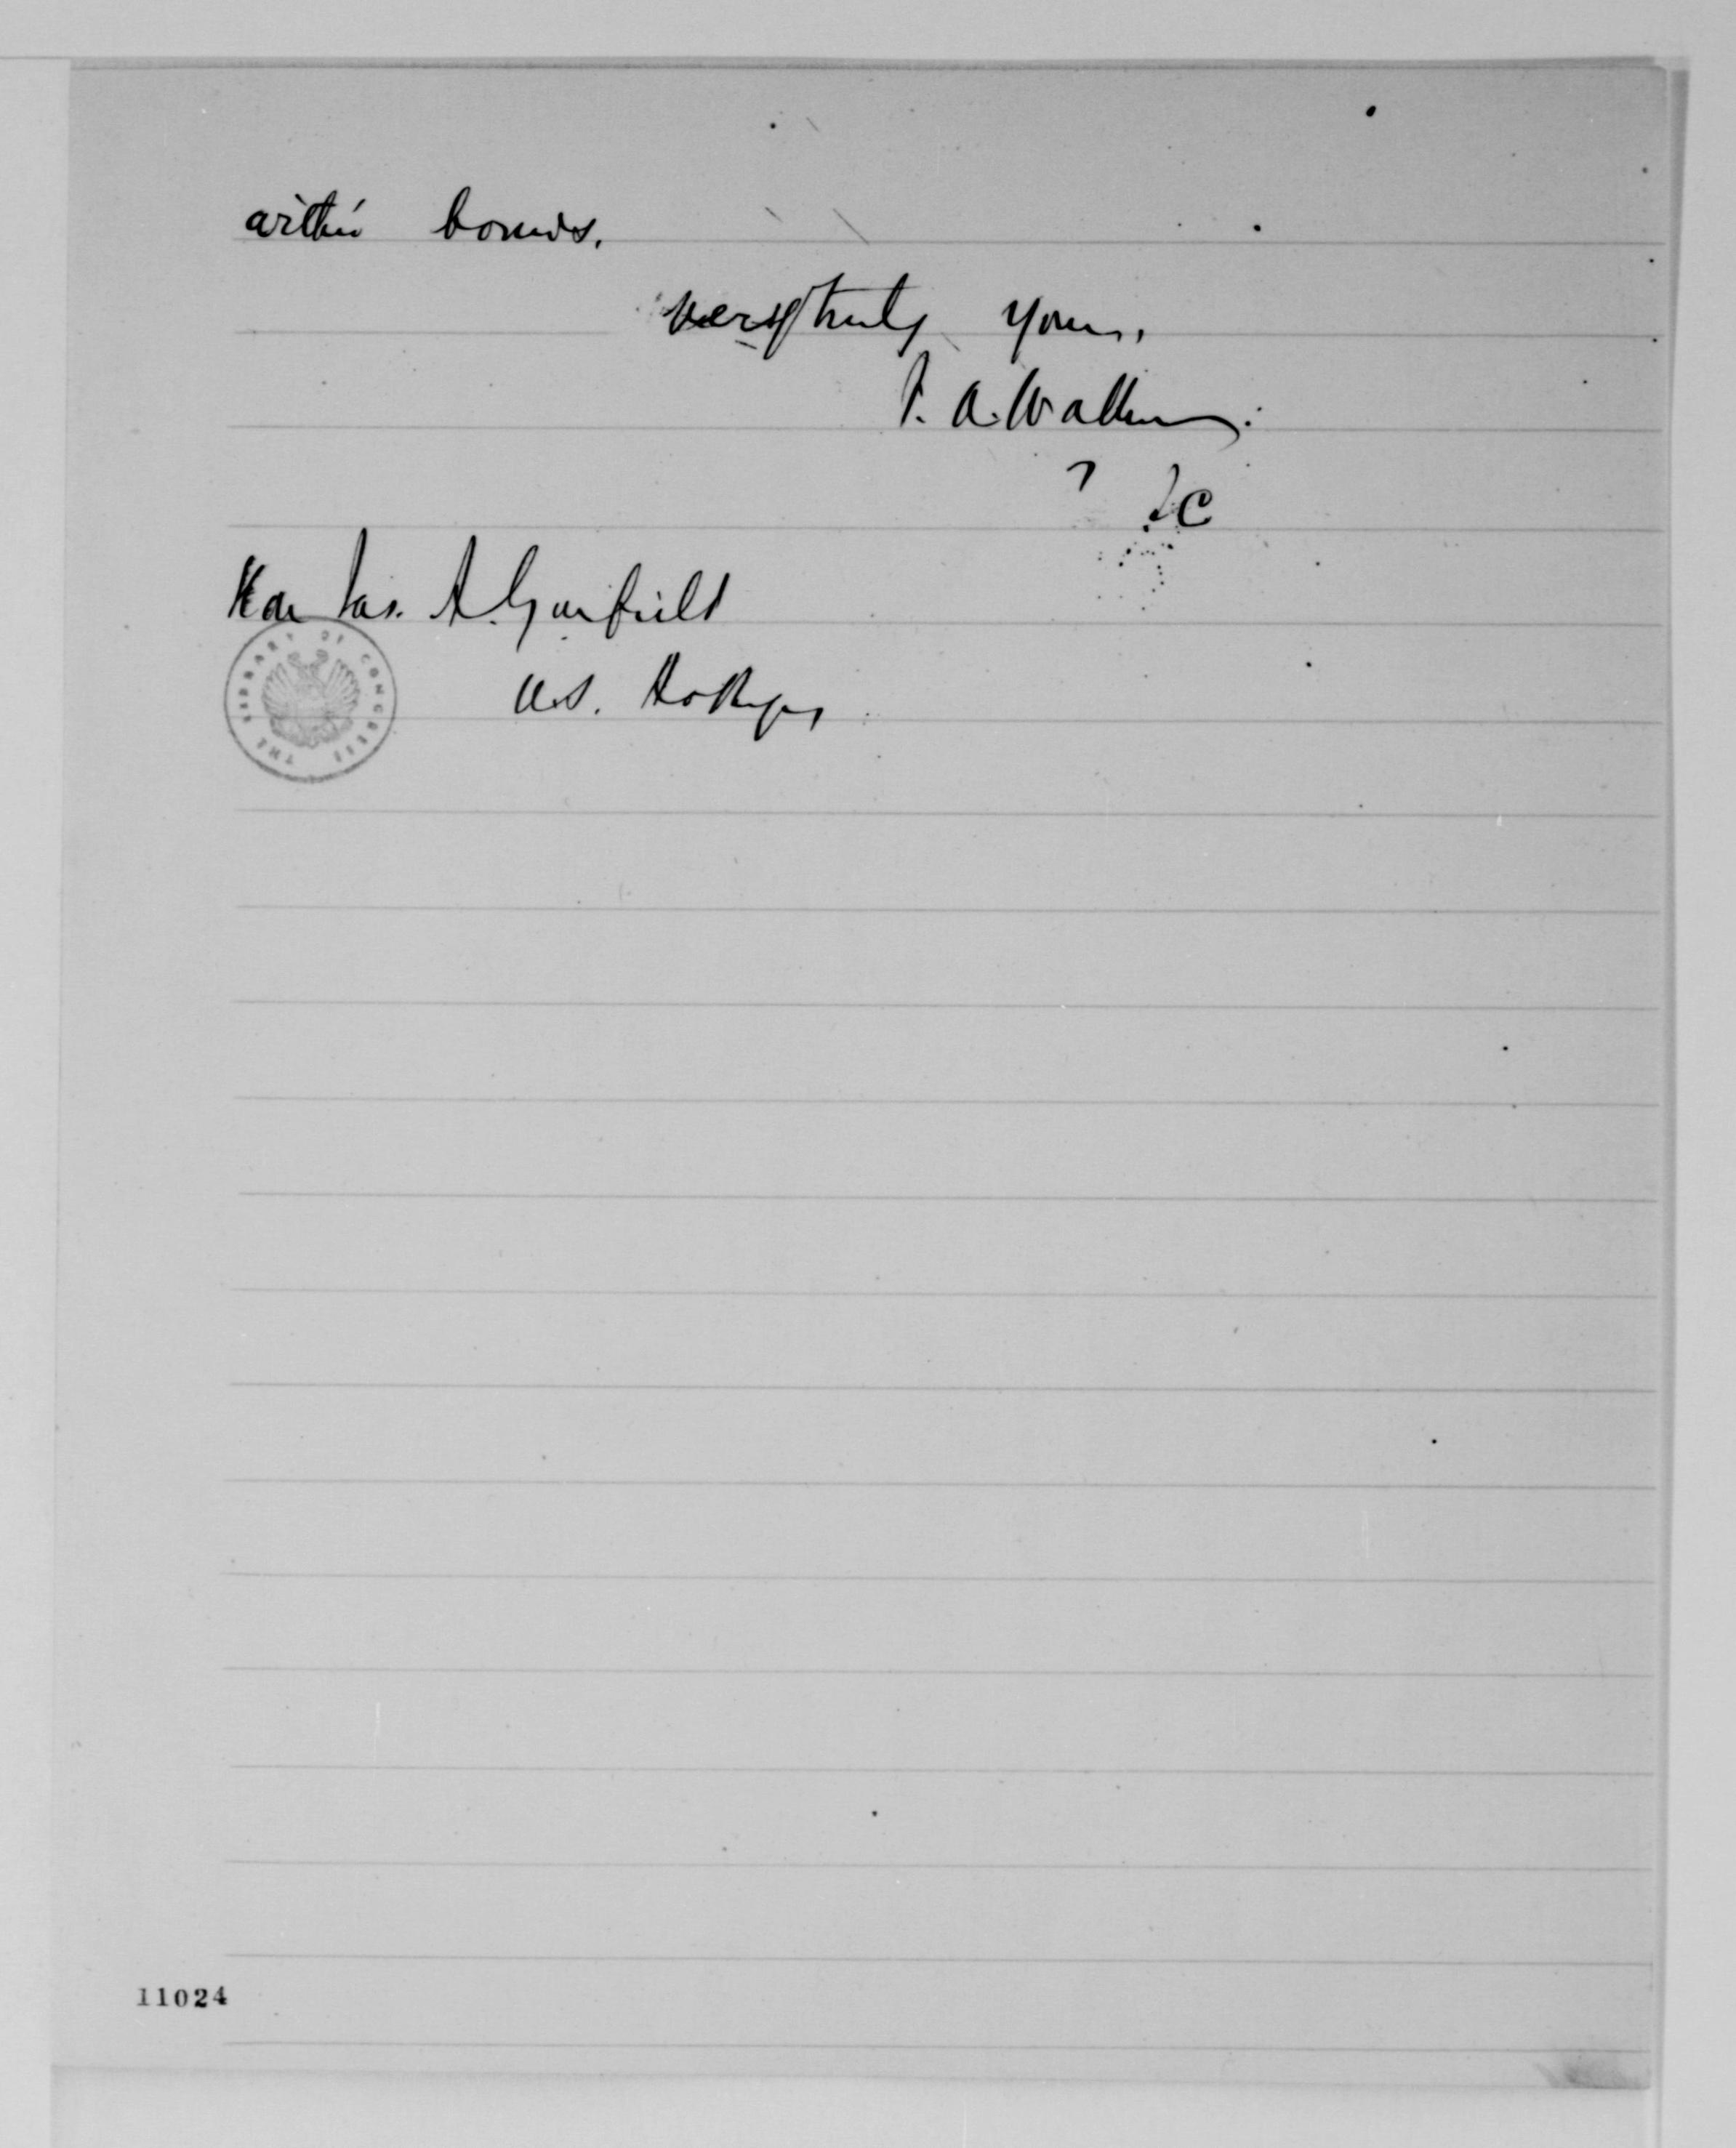 within bounds.
Very truly yours,
F. A. Walker.
Hon Jas. A. Garfield
U.S. Ho Reps
THE LIBRARY OF CONGRESS
11024